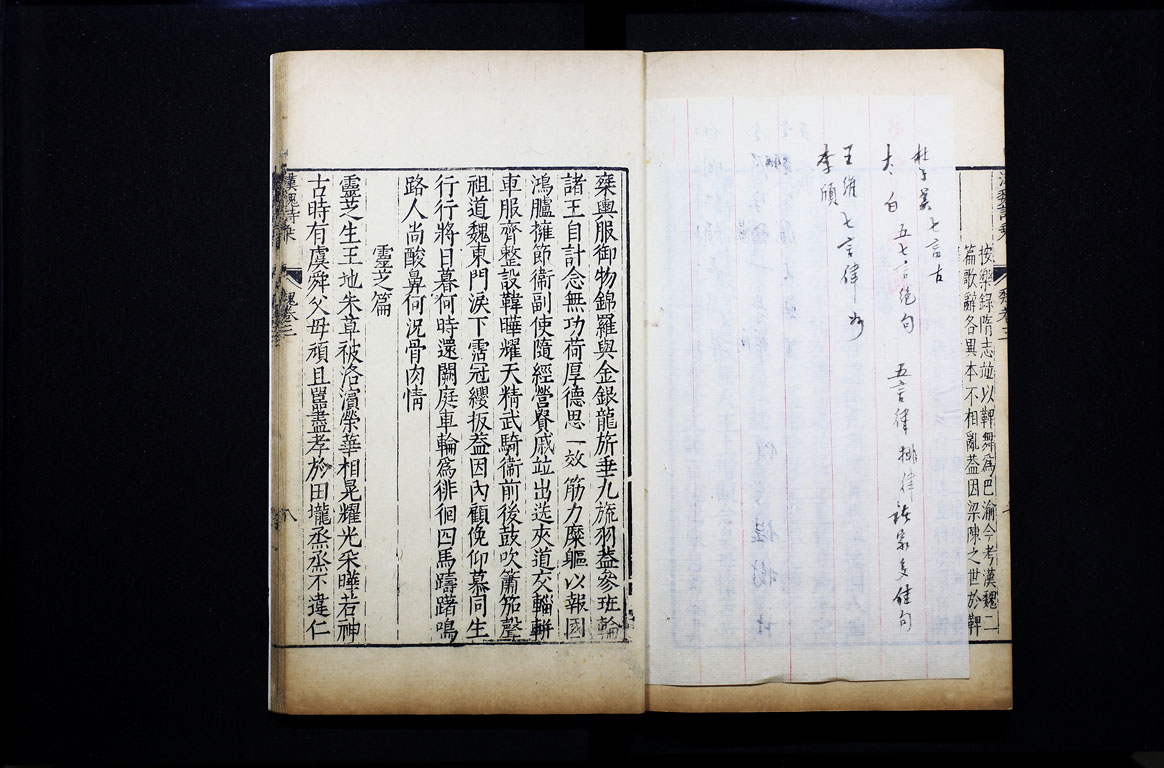 漢魏詩乘
魏卷三
按樂錄隋志竝以鞞舞爲巴渝今考漢魏二
篇歌辭各異本不相亂葢因梁陳之世於鞞
杜子美 七言古
太白 五七言絕句 五言律排律諸家多佳句
王維 七言律
李頎
椉輿服御物錦羅與金銀龍旂垂九旒羽葢參班輪
諸王自計念無功荷厚德思一效筋力糜軀以報國
鴻臚擁節衞副使隨經營貴戚竝出送夾道交輜軿
車服齊整設韡曄耀天精武騎衞前後鼓吹簫笳聲
祖道魏東門淚下霑冠纓扳葢因內顧俛仰慕同生
行行將日暮何時還闕庭車輪爲徘徊四馬躊躇鳴
路人尚酸鼻何況骨肉情
靈芝篇
靈芝生王地朱草被洛濵榮華相晃耀光采曄若神
古時有虞舜父母頑且嚚盡孝於田壠烝烝不違仁
漢魏詩乘
魏卷三
八